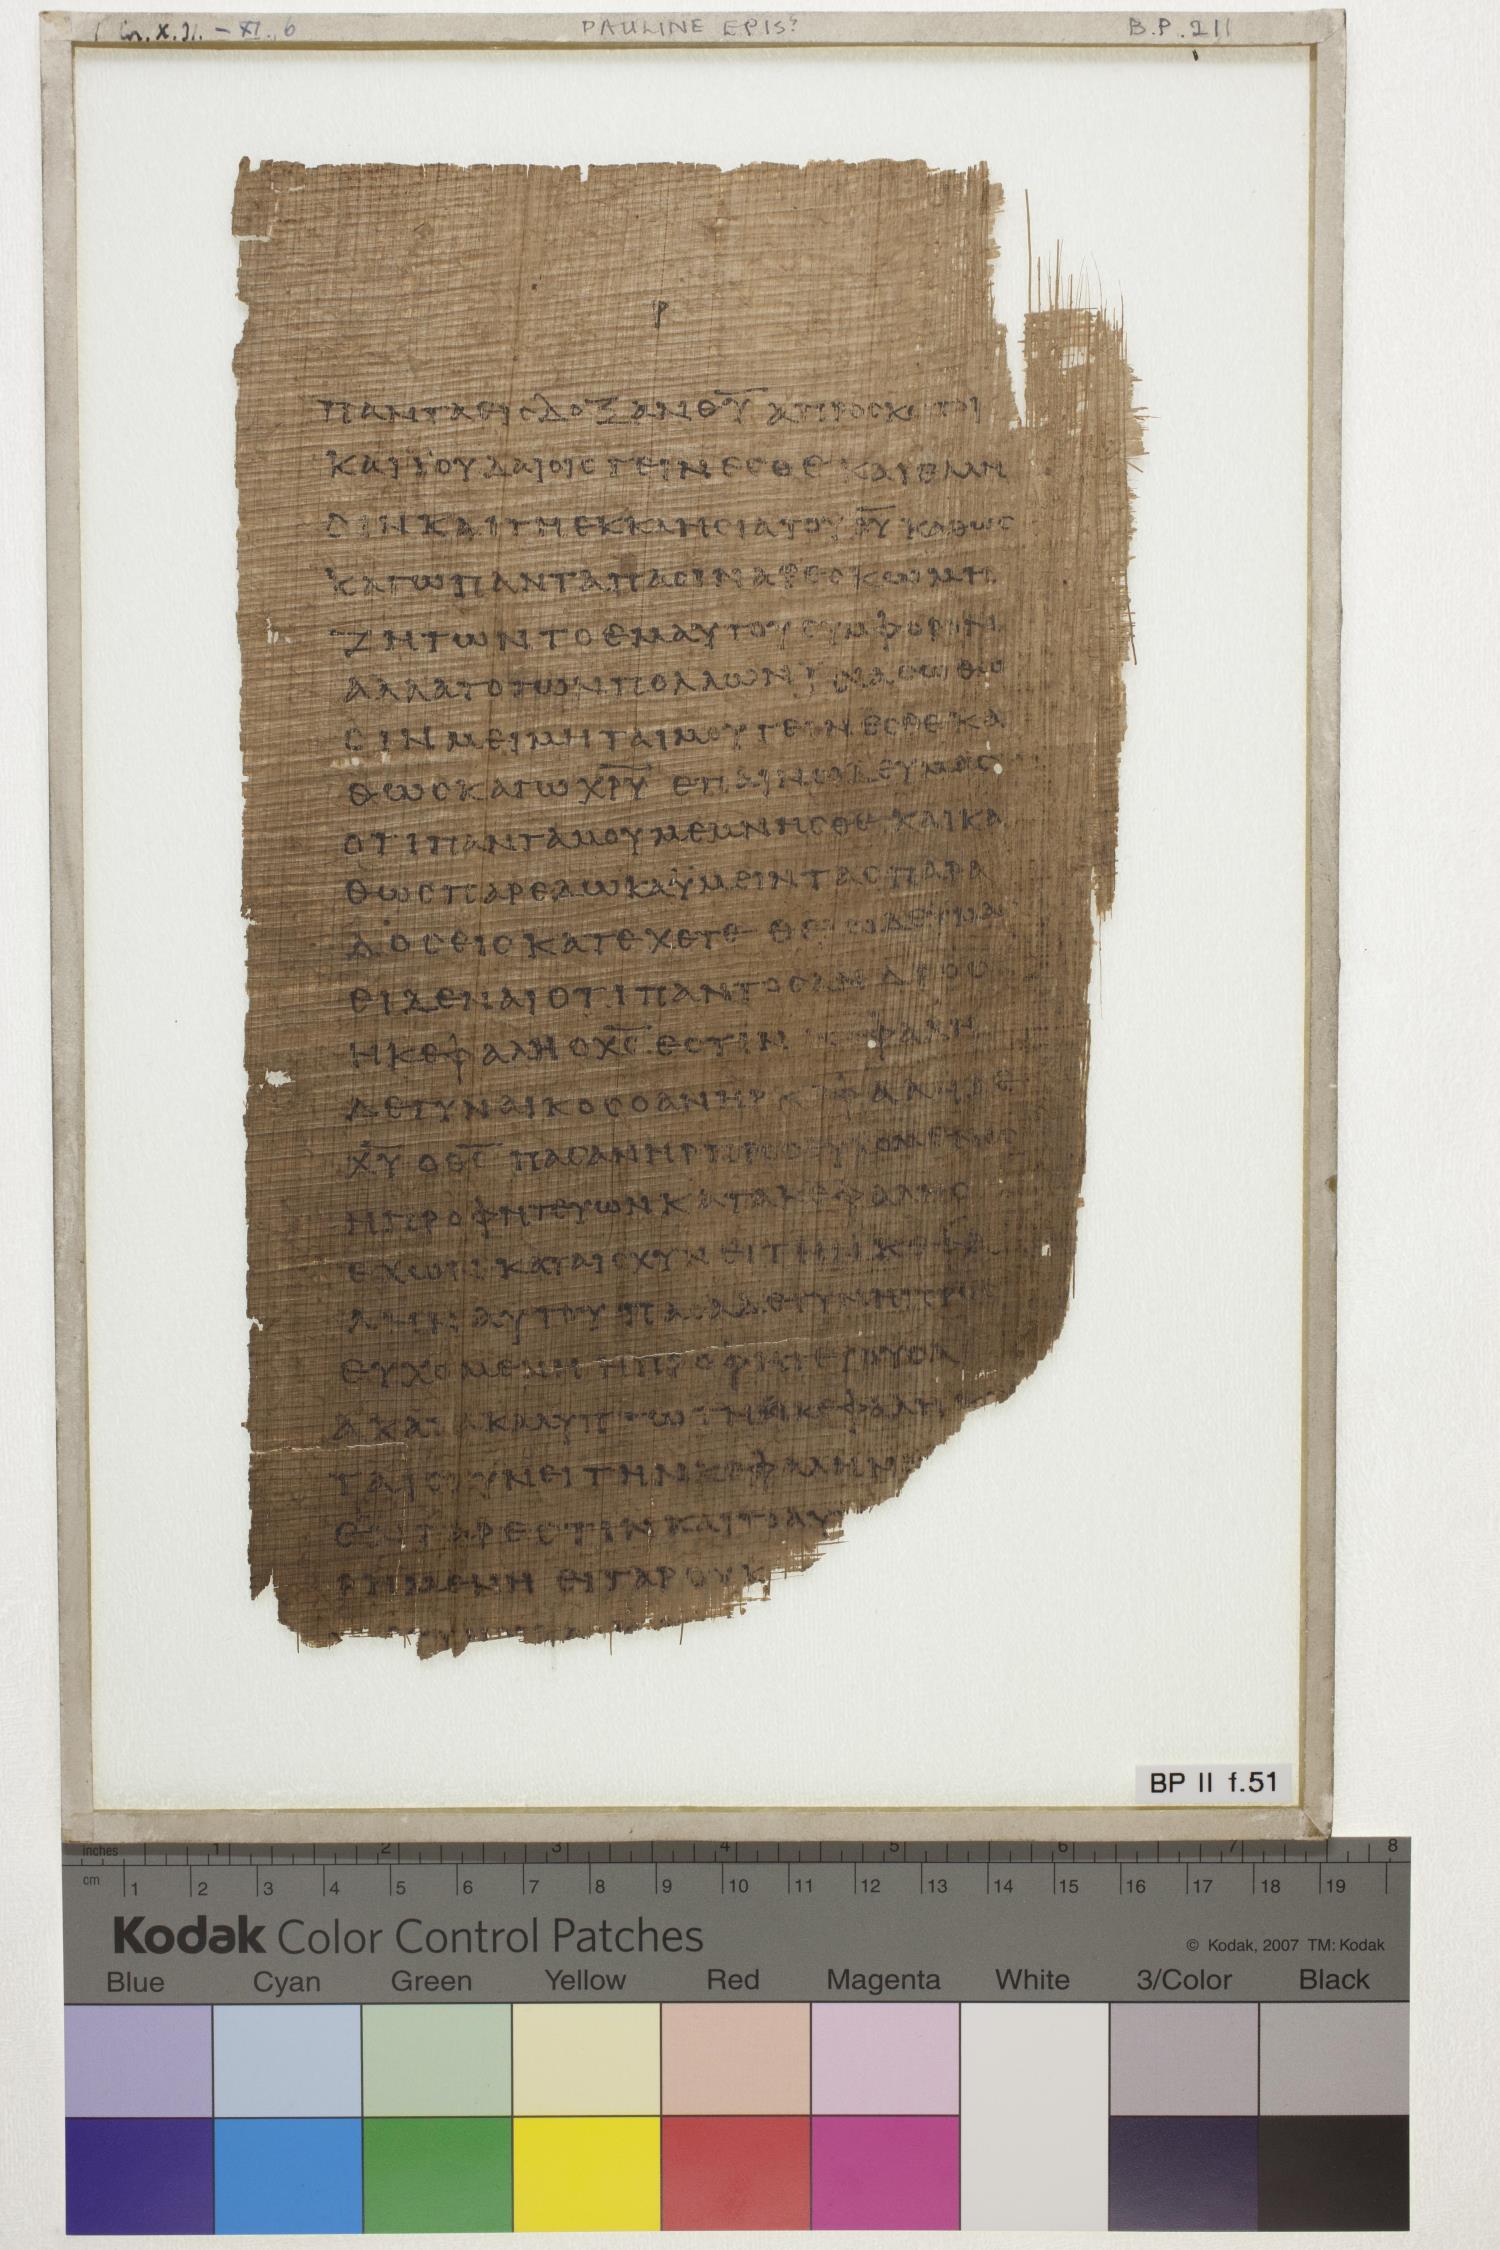 1 Cor. X. 31. – XI. 6 PAULINE EPIS? B.P. 211
ρ
ΠΑΝΤΑΕΙϹΔΟΞΑΝΘ̅Υ̅ ΑΠΡΟϹΚΟΠΟΙ
ΚΑΙΪΟΥΔΑΙΟΙϹΓΕΙΝΕϹΘΕ ΚΑΙΕΛΛΗ
ϹΙΝΚΑΙΤΗΕΚΚΛΗϹΙΑΤΟΥΘ̅Υ̅ ΚΑΘΩϹ
ΚΑΓΩΠΑΝΤΑΠΑϹΙΝΑΡΕϹΚΩΜΗ
ΖΗΤΩΝΤΟΕΜΑΥΤΟΥϹΥΜΦΟΡΟΝ
ΑΛΛΑΤΟΤΩΝΠΟΛΛΩΝΙΝΑϹΩΘΩ
ϹΙΝΜΕΙΜΗΤΑΙΜΟΥΓΕΙΝΕϹΘΕΚΑ
ΘΩϹΚΑΓΩΧ̅Ρ̅Υ̅ ΕΠΑΙΝΩΔΕΥΜΑϹ
ΟΤΙΠΑΝΤΑΜΟΥΜΕΜΝΗϹΘΕ ΚΑΙΚΑ
ΘΩϹΠΑΡΕΔΩΚΑΫΜΕΙΝΤΑϹΠΑΡΑ
ΔΟϹΕΙϹΚΑΤΕΧΕΤΕ ΘΕΛΩΔΕΥΜΑϹ
ΕΙΔΕΝΑΙΟΤΙΠΑΝΤΟϹΑΝΔΡΟϹ
ΗΚΕΦΑΛΗΟΧ̅Ϲ̅ ΕϹΤΙΝ ΚΕΦΑΛΗ
ΔΕΓΥΝΑΙΚΟϹΟΑΝΗΡ ΚΕΦΑΛΗΔΕ
Χ̅Υ̅ ΟΘ̅Ϲ̅ ΠΑϹΑΝΗΡΠΡΟϹΕΥΧΟΜΕΝΟϹ
ΗΠΡΟΦΗΤΕΥΩΝΚΑΤΑΚΕΦΑΛΗϹ
ΕΧΩΝ ΚΑΤΑΙϹΧΥΝΕΙΤΗΝΚΕΦΑ
ΛΗΝ ΑΥΤΟΥ ΠΑϹΑΔΕΓΥΝΗΠΡΟϹ
ΕΥΧΟΜΕΝΗ ΗΠΡΟΦΗΤΕΥΟΥϹΑ
ΑΚΑΤΑΚΑΛΥΠΤΩ ΤΗΚΕΦΑΛΗ ΚΑ
ΤΑΙϹΧΥΝΕΙΤΗΝΚΕΦΑΛΗΝ
ΕΝΓΑΡΕϹΤΙΝΚΑΙΤΟΑΥ
ΡΗΜΕΝΗ ΕΙΓΑΡΟΥΚ
BP II f.51
inches 1 2 3 4 5 6 7 8
cm 1 2 3 4 5 6 7 8 9 10 11 12 13 14 15 16 17 18 19
Kodak Color Control Patches
© Kodak, 2007 TM: Kodak
Blue Cyan Green Yellow Red Magenta White 3/Color Black